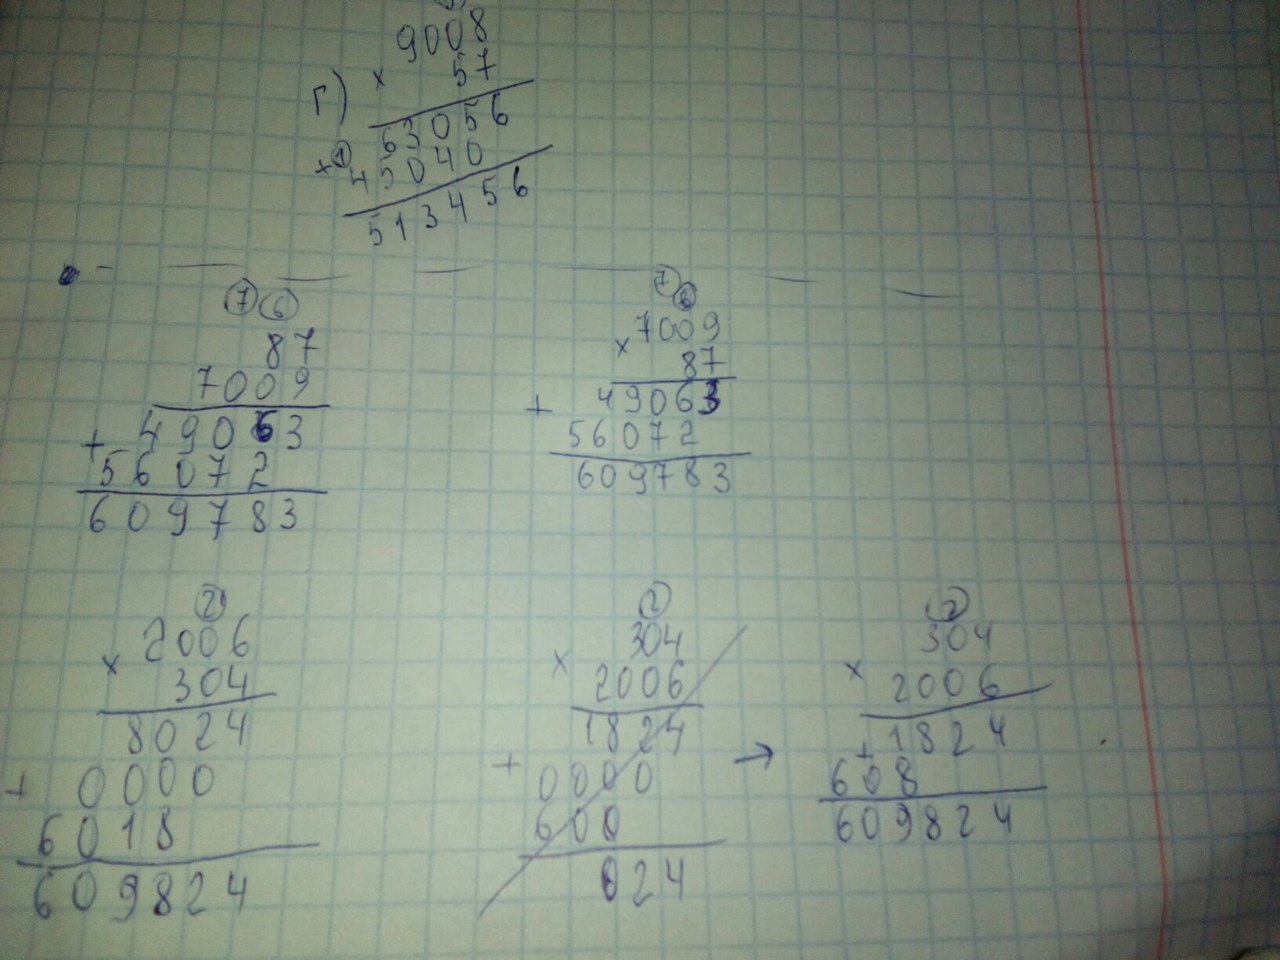 9008
г) × 57
63056
+ 45040
513456
7 6
87
7009
49063
+ 56072
609783
7 6
7009
× 87
49063
+ 56072
609783
2
2006
× 304
8024
+ 0000
6018
609824
2
304
× 2006
1824
+ 0000
600
024
→
2
304
× 2006
1824
+ 608
609824